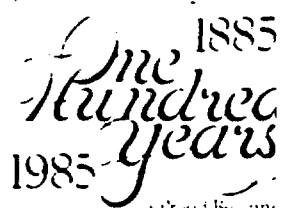 1885
One
Hundred
Years
1985